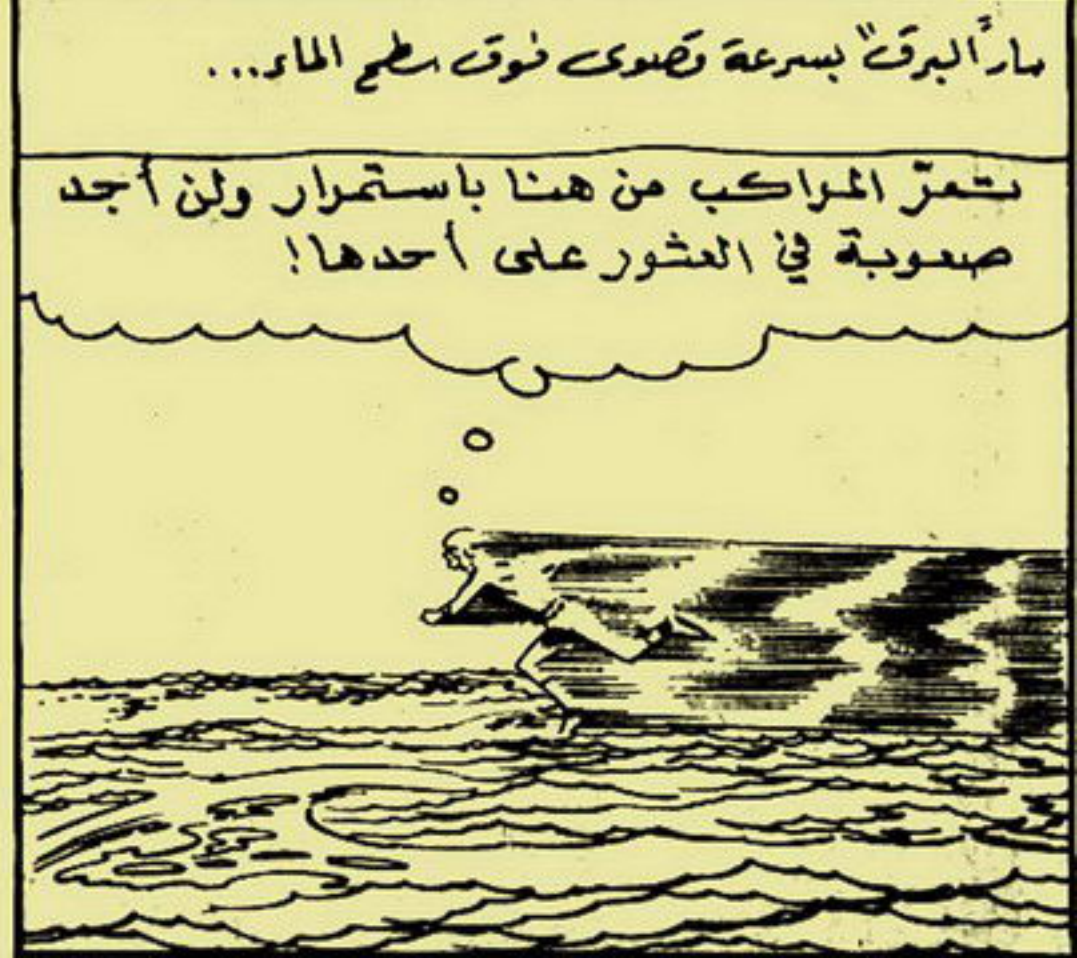 سار "البرق" بسرعة قصوى فوق سطح الماء...
ستمرّ المراكب من هنا باستمرار ولن أجد
صعوبة في العثور على أحدها!